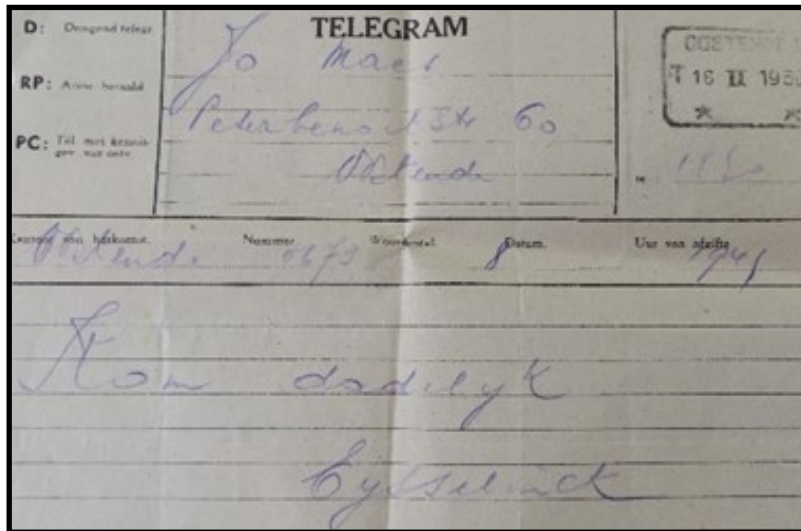 TELEGRAM
D: Dringend telegr
RP: Antw betaald
PC: Tel. met kennis
gev. van ontv.
Jo Maes
Peter benoit Str 60
Oostende
OOSTENDE
16 II 195
Kantoor van herkomst. Nummer Woordental. Datum. Uur van afgifte
Oostende 0673 8 1945
Kom dadelyk
Eysselinck